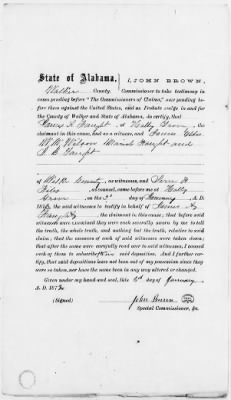 State of Alabama, I, JOHN BROWN,
Walker County. Commissioner to take testimony in
cases pending before "The Commissioners of Claims," now pending be-
fore them against the United States, and as Probate Judge in and for
the County of Walker and State of Alabama, do certify, that
of Holly Grove, as
claimant in this case, and as a witness, and James
W. W. Wilson and
of Walker County, as witnesses, and
Files Attorney, came before me at Holly
Grove on the day of January A. D.
187 , the said witnesses to testify in behalf of James
the claimant in this cause; that before said
witnesses were examined they were each severally sworn by me to tell
the truth, the whole truth, and nothing but the truth, relative to said
claim; that the answers of each of said witnesses were taken down;
that after the same were carefully read over to said witnesses, I caused
each of them to subscribe said deposition. And I further certi-
fy, that said depositions have not been out of my possession since they
were so taken, nor have the same been in any way altered or changed.
Given under my hand and seal, this day of January
A. D. 187
(Signed) John Brown
Special Commissioner, &c.